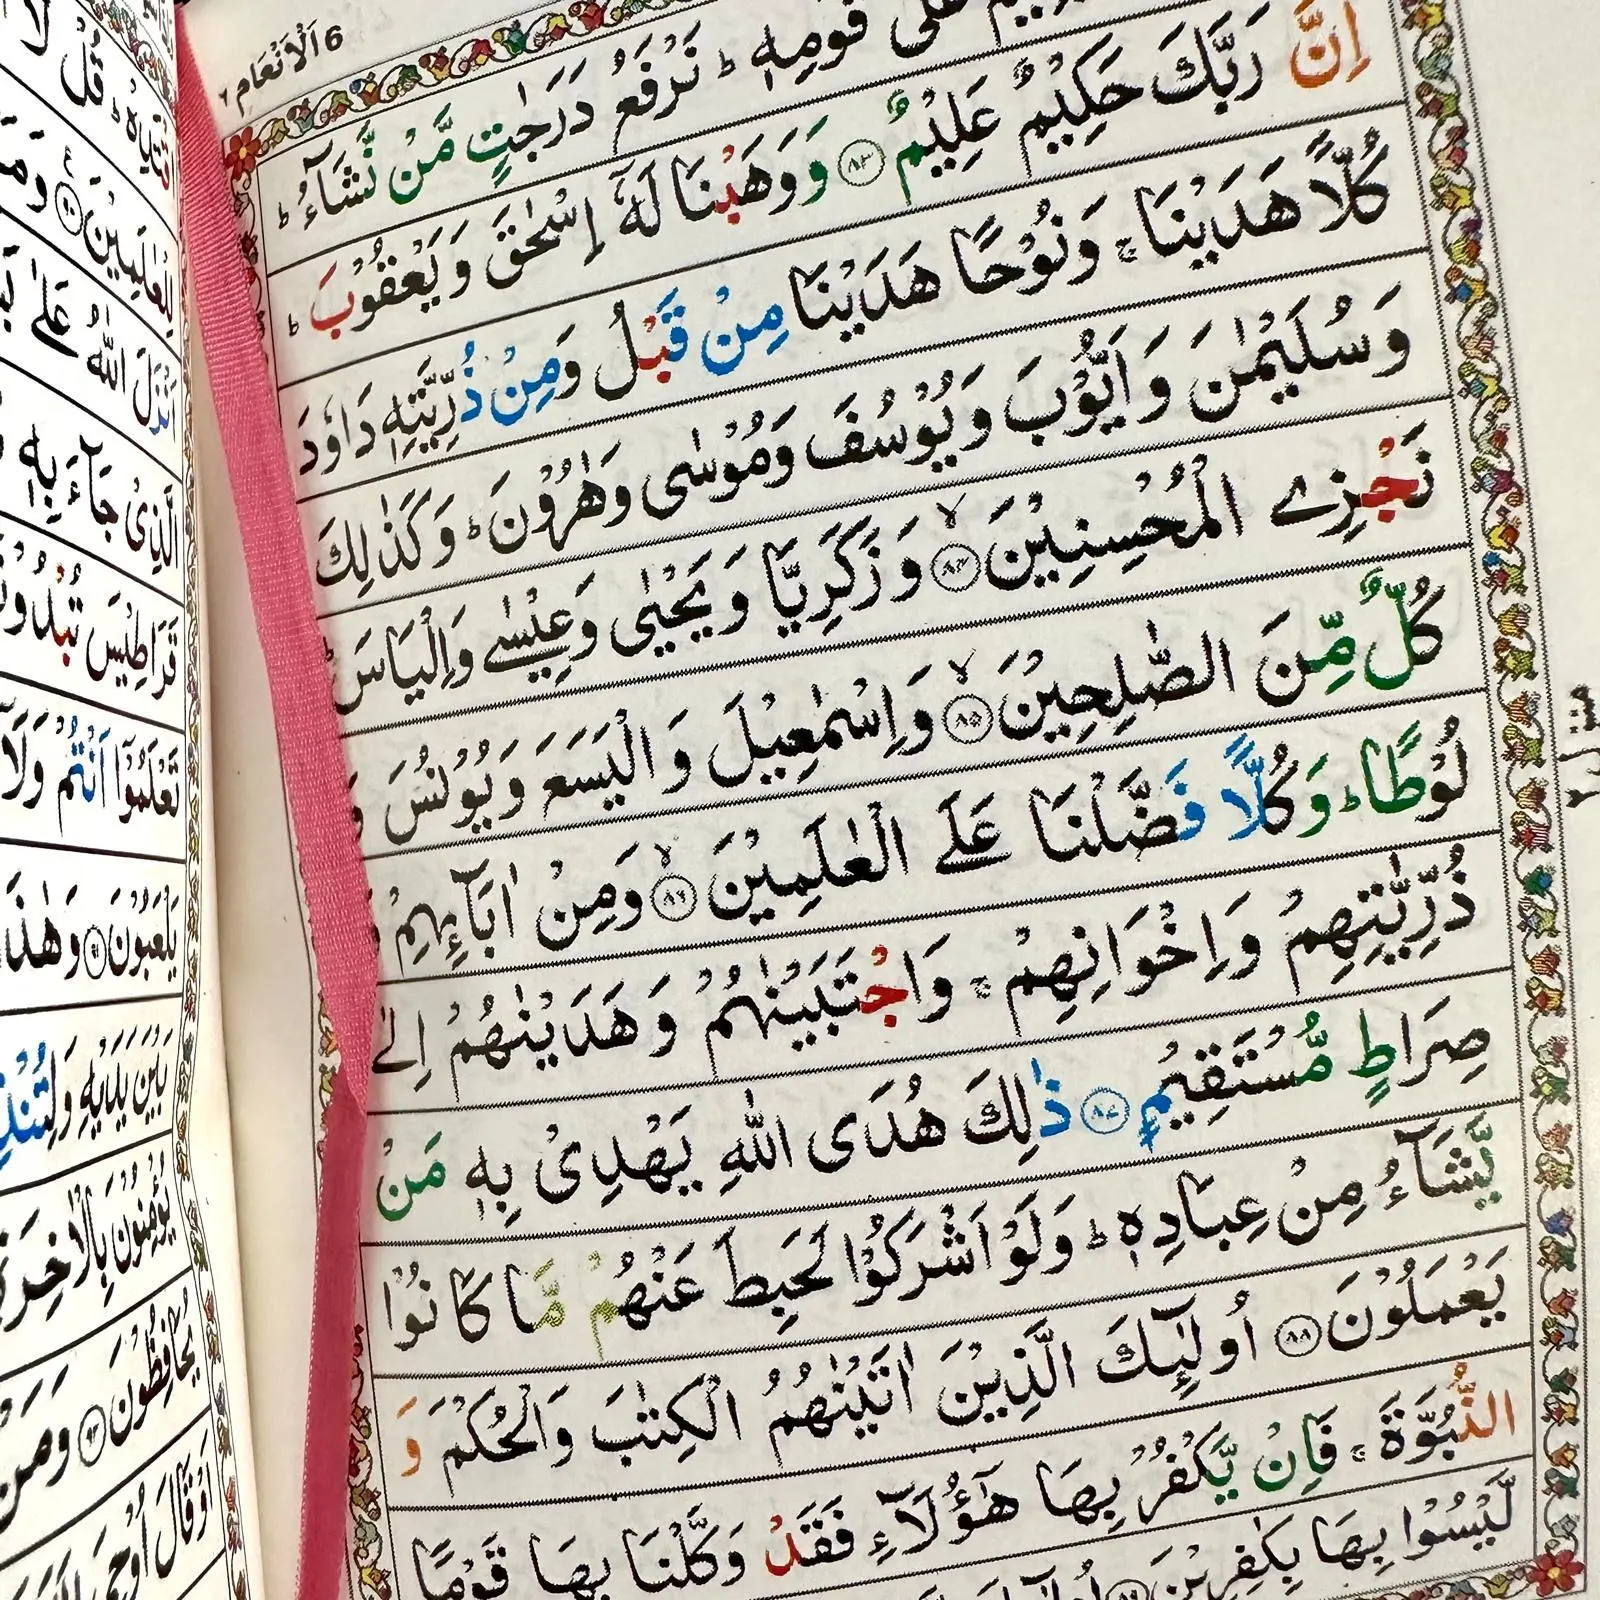 6 اَلْاَنْعَام ٦
عَلٰى قَوْمِهٖ ؕ نَرْفَعُ دَرَجٰتٍ مَّنْ نَّشَآءُ ؕ
اِنَّ رَبَّكَ حَكِيْمٌ عَلِيْمٌ ﴿۸۳﴾ وَوَهَبْنَا لَهٗۤ اِسْحٰقَ وَيَعْقُوْبَ ؕ
كُلًّا هَدَيْنَا ۚ وَنُوْحًا هَدَيْنَا مِنْ قَبْلُ وَمِنْ ذُرِّيَّتِهٖ دَاوٗدَ
وَسُلَيْمٰنَ وَاَيُّوْبَ وَيُوْسُفَ وَمُوْسٰى وَهٰرُوْنَ ؕ وَكَذٰلِكَ
نَجْزِے الْمُحْسِنِيْنَ ﴿۸۴﴾ۙ وَزَكَرِيَّا وَيَحْيٰى وَعِيْسٰے وَاِلْيَاسَ ؕ
كُلٌّ مِّنَ الصّٰلِحِيْنَ ﴿۸۵﴾ۙ وَاِسْمٰعِيْلَ وَالْيَسَعَ وَيُوْنُسَ وَ
لُوْطًا ؕ وَكُلًّا فَضَّلْنَا عَلَے الْعٰلَمِيْنَ ﴿۸۶﴾ۙ وَمِنْ اٰبَآئِهِمْ وَ
ذُرِّيّٰتِهِمْ وَاِخْوَانِهِمْ ۚ وَاجْتَبَيْنٰهُمْ وَهَدَيْنٰهُمْ اِلٰے
صِرَاطٍ مُّسْتَقِيْمٍ ﴿۸۷﴾ ذٰلِكَ هُدَى اللّٰهِ يَهْدِىْ بِهٖ مَنْ
يَّشَآءُ مِنْ عِبَادِهٖ ؕ وَلَوْ اَشْرَكُوْا لَحَبِطَ عَنْهُمْ مَّا كَانُوْا
يَعْمَلُوْنَ ﴿۸۸﴾ اُولٰٓئِكَ الَّذِيْنَ اٰتَيْنٰهُمُ الْكِتٰبَ وَالْحُكْمَ وَ
النُّبُوَّةَ ۚ فَاِنْ يَّكْفُرْ بِهَا هٰٓؤُلَآءِ فَقَدْ وَكَّلْنَا بِهَا قَوْمًا
لَّيْسُوْا بِهَا بِكٰفِرِيْنَ ﴿۸۹﴾
منزل ۲
قُلْ
لِلْعٰلَمِيْنَ ﴿۹۰﴾
اَنْزَلَ اللّٰهُ عَلٰى
الَّذِىْ جَآءَ بِهٖ
قَرَاطِيْسَ تُبْدُوْنَ
تَعْلَمُوْۤا اَنْتُمْ وَلَاۤ
يَلْعَبُوْنَ ﴿۹۱﴾ وَهٰذَا
بَيْنَ يَدَيْهِ وَلِتُنْذِرَ
يُؤْمِنُوْنَ بِالْاٰخِرَةِ
يُحَافِظُوْنَ ﴿۹۲﴾ وَمَنْ
اَوْ قَالَ اُوْحِىَ